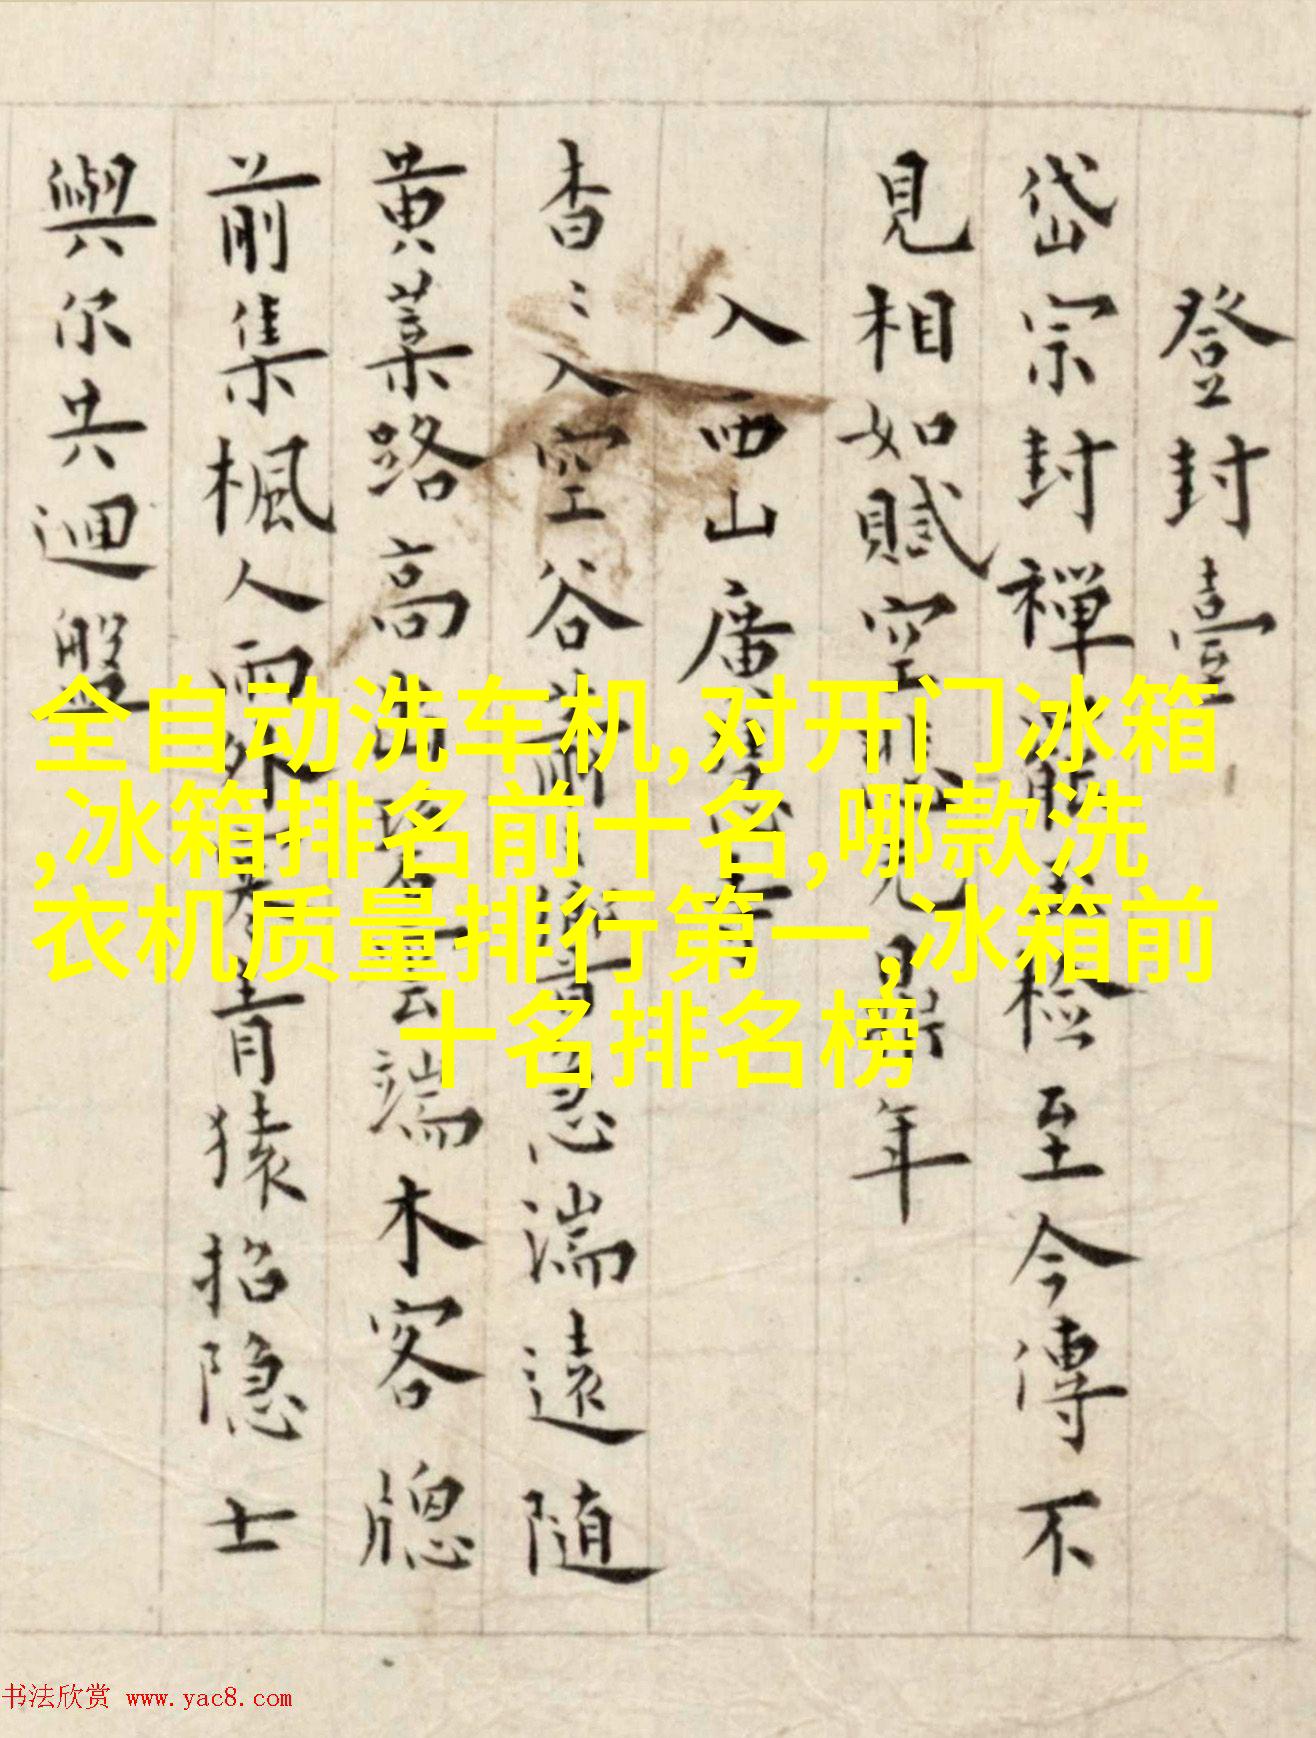 登封臺
岱宗封禪檢至今傳不
見相如賦空年
入西山廣
杳〻入空谷急湍遠隨
黄葉路高端木客牕
前集楓人雨青猿招隐士
與尔共迴盤
全自动洗车机,对开门冰箱
,冰箱排名前十名,哪款洗
衣机质量排行第一,冰箱前
十名排名榜
书法欣赏 www.yac8.com